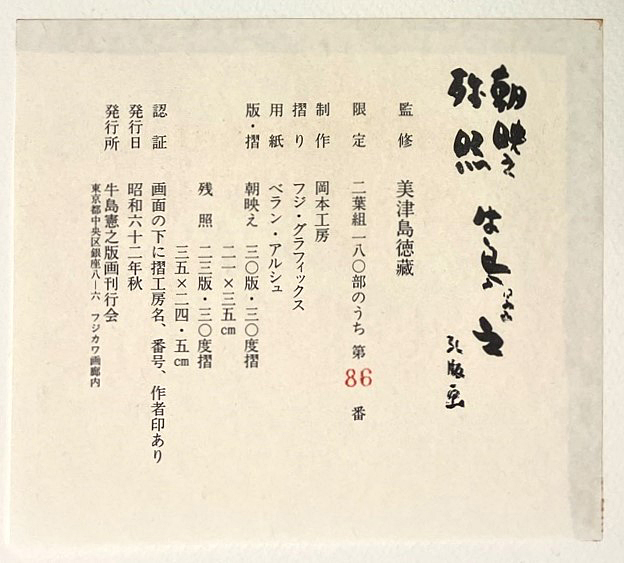 朝映え
残照
牛島憲之
孔版画
監修 美津島徳藏
限定 二葉組一八〇部のうち 第 86 番
制作 岡本工房
摺り フジ・グラフィックス
用紙 ベラン・アルシュ
版・摺 朝映え 三〇版・三〇度摺
二一×三五cm
残照 二三版・三〇度摺
三五×二四・五cm
認証 画面の下に摺工房名、番号、作者印あり
発行日 昭和六十二年秋
発行所 牛島憲之版画刊行会
東京都中央区銀座八―六 フジカワ画廊内